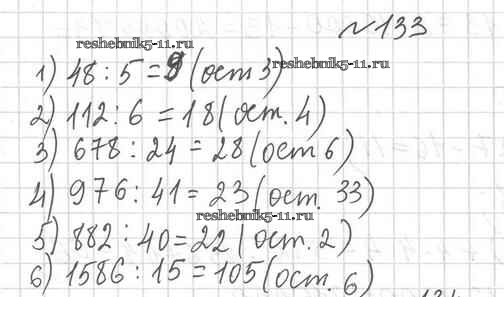 №133
reshebnik5-11.ru
1) 48 : 5 = 9 (ост 3)
reshebnik5-11.ru
2) 112 : 6 = 18 (ост. 4)
3) 678 : 24 = 28 (ост 6)
4) 976 : 41 = 23 (ост. 33)
reshebnik5-11.ru
5) 882 : 40 = 22 (ост. 2)
6) 1586 : 15 = 105 (ост. 6)